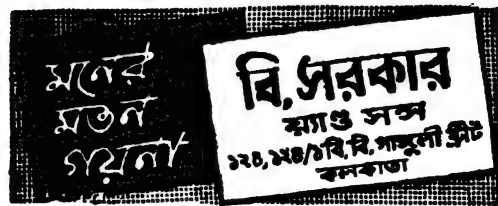 মনের
মতন
গয়না
বি, সরকার
য়্যাণ্ড সন্স
১২৪,১২৪/১বি,বি,গাঙ্গুলী স্ট্রীট
কলকাতা